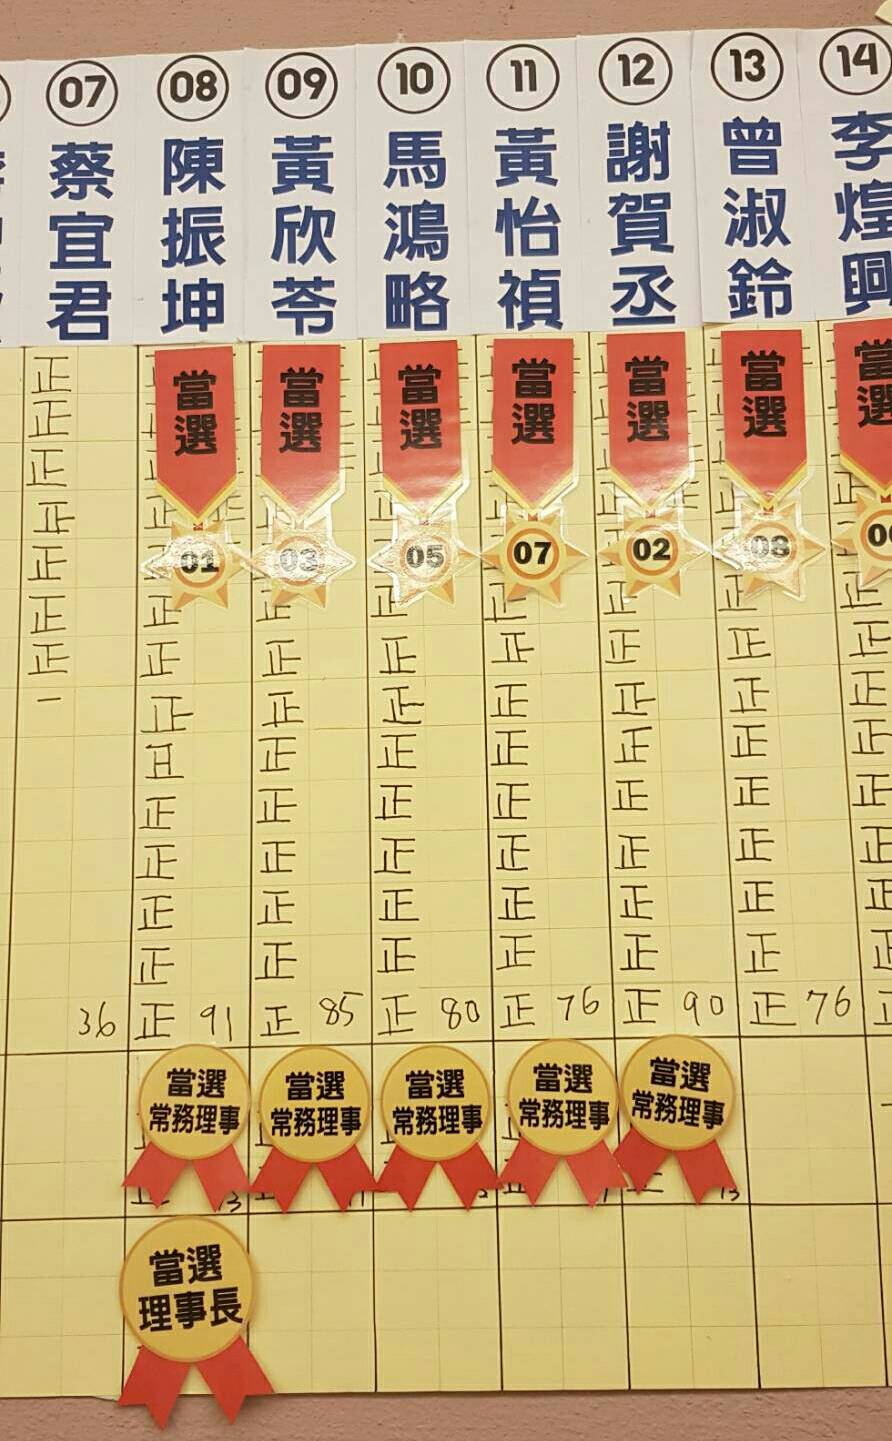 07
蔡宜君
正
正
正
正
正
正
正
一
36
08
陳振坤
當選
01
正
正
正
正
正
正
正
正
正 91
當選
常務理事
13
當選
理事長
09
黃欣苓
當選
03
正
正
正
正
正
正
正
正 85
當選
常務理事
10
馬鴻略
當選
05
正
正
正
正
正
正
正
正
正 80
當選
常務理事
11
黃怡禎
當選
07
正
正
正
正
正
正
正
正
正 76
當選
常務理事
12
謝賀丞
當選
02
正
正
正
正
正
正
正
正
正 90
當選
常務理事
13
13
曾淑鈴
當選
08
正
正
正
正
正
正
正
正
正 76
14
李煌興
當選
正
正
正
正
正
正
正
正